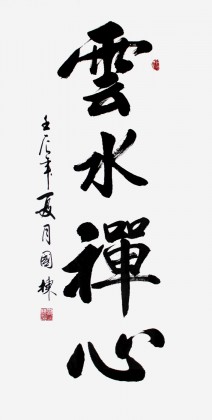 雲水禪心
壬辰年夏月國棟